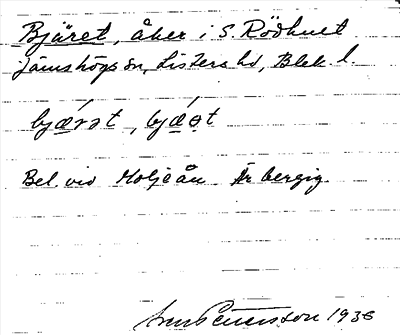 Bjäret, åker i S. Rödhult
Jämshögs sn, Listers hd, Blek. l.
bjǽrət, bjǽət
Bel. vid Holjeån. Är bergig.
Petersson 1936